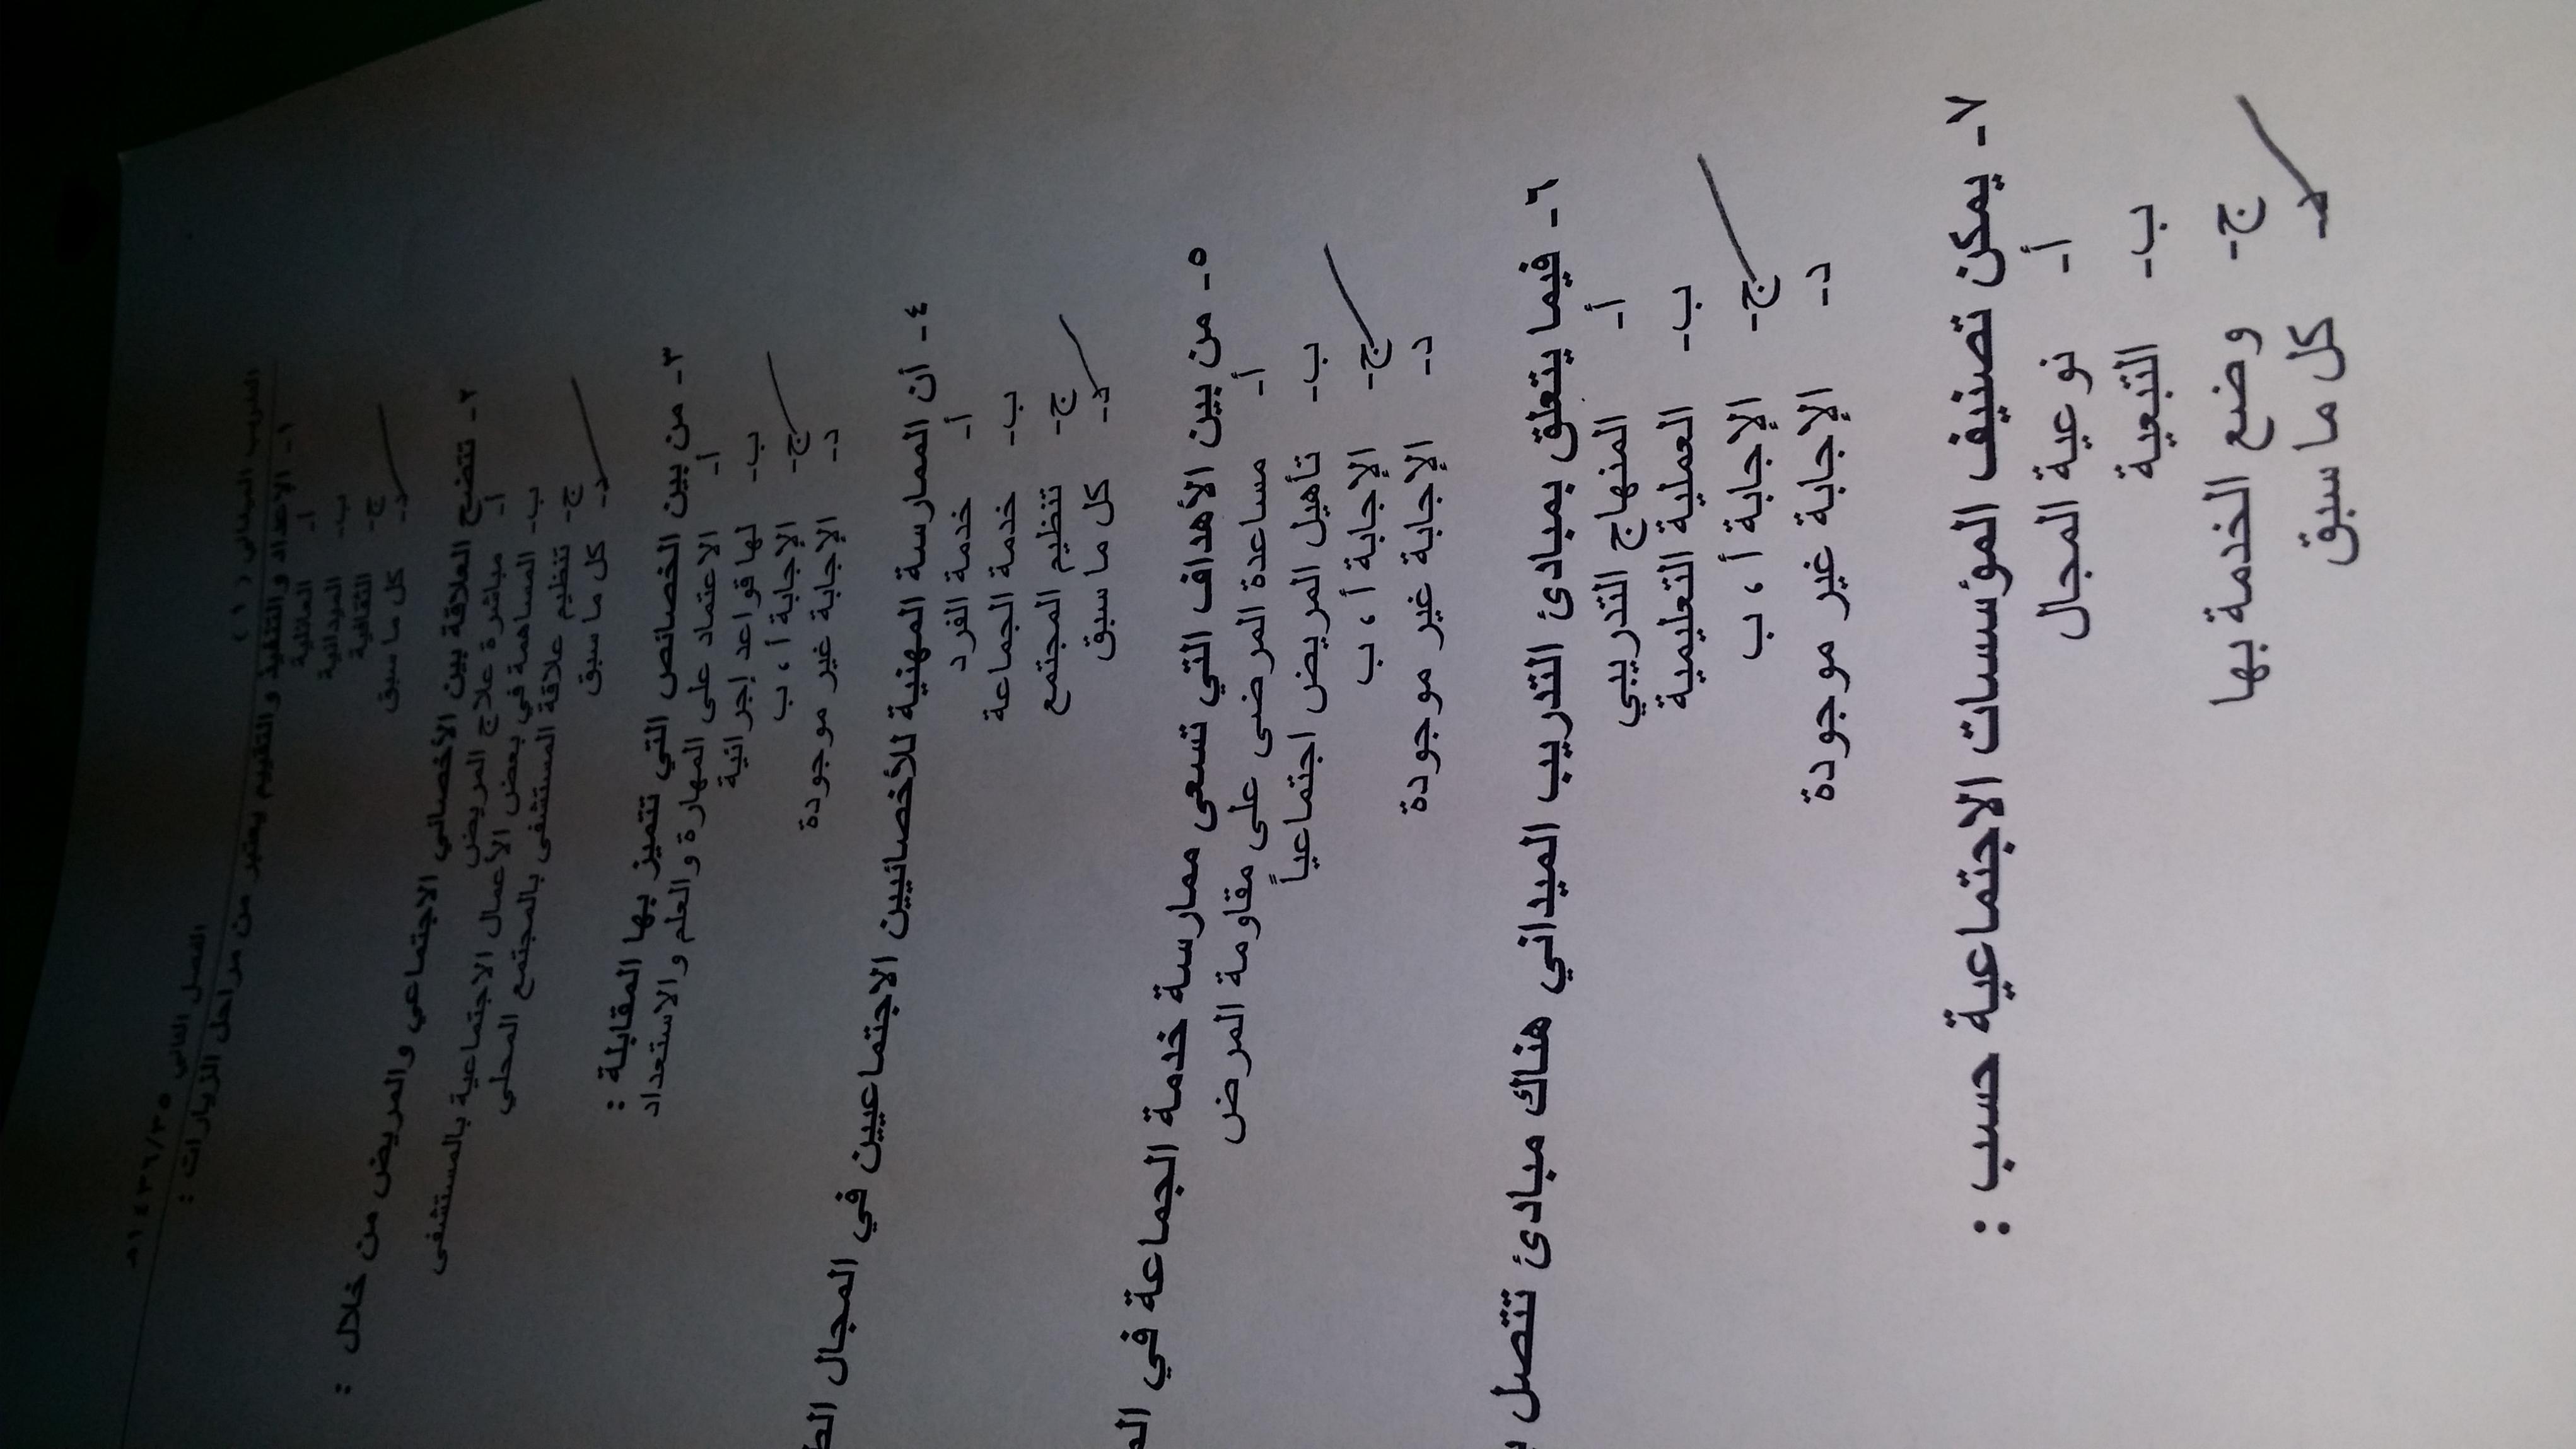 التدريب الميداني ( ١ )
الفصل الثاني ١٤٣٦/٣٥هـ
١- الاعداد والتنفيذ والتقييم يعتبر من مراحل الزيارات :
أ- العائلية
ب- الميدانية
ج- الثقافية
د- كل ما سبق
٢- تتضح العلاقة بين الأخصائي الاجتماعي والمريض من خلال :
أ- مباشرة علاج المريض
ب- المساهمة في بعض الأعمال الاجتماعية بالمستشفى
ج- تنظيم علاقة المستشفى بالمجتمع المحلي
د- كل ما سبق
٣- من بين الخصائص التي تتميز بها المقابلة :
أ- الاعتماد على المهارة والعلم والاستعداد
ب- لها قواعد إجرائية
ج- الإجابة أ ، ب
د- الإجابة غير موجودة
٤- أن الممارسة المهنية للأخصائيين الاجتماعيين في المجال
أ- خدمة الفرد
ب- خدمة الجماعة
ج- تنظيم المجتمع
د- كل ما سبق
٥- من بين الأهداف التي تسعى ممارسة خدمة الجماعة في
أ- مساعدة المرضى على مقاومة المرض
ب- تأهيل المريض اجتماعياً
ج- الإجابة أ ، ب
د- الإجابة غير موجودة
٦- فيما يتعلق بمبادئ التدريب الميداني هناك مبادئ تتصل
أ- المنهاج التدريبي
ب- العملية التعليمية
ج- الإجابة أ ، ب
د- الإجابة غير موجودة
٧- يمكن تصنيف المؤسسات الاجتماعية حسب :
أ- نوعية المجال
ب- التبعية
ج- وضع الخدمة بها
د- كل ما سبق